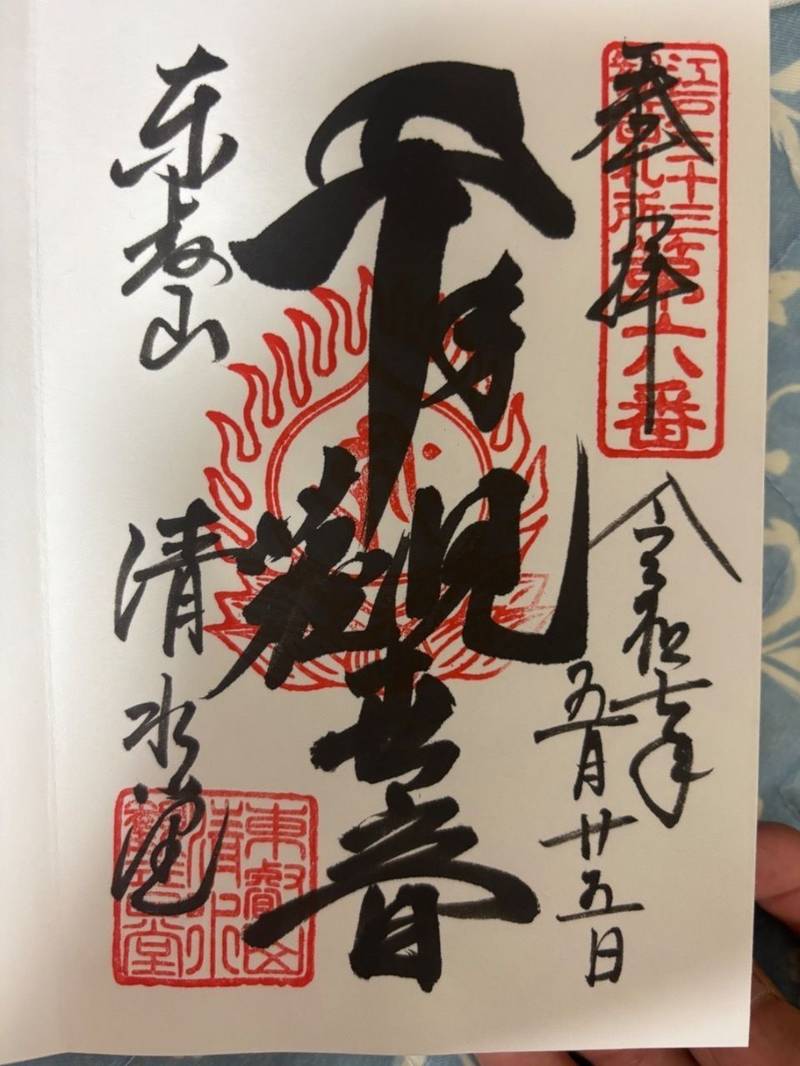 奉拝
江戸三十三
札所
第六番
令和七年
五月廿五日
千手觀世音
東叡山
清水堂
東叡山
清水
觀音堂